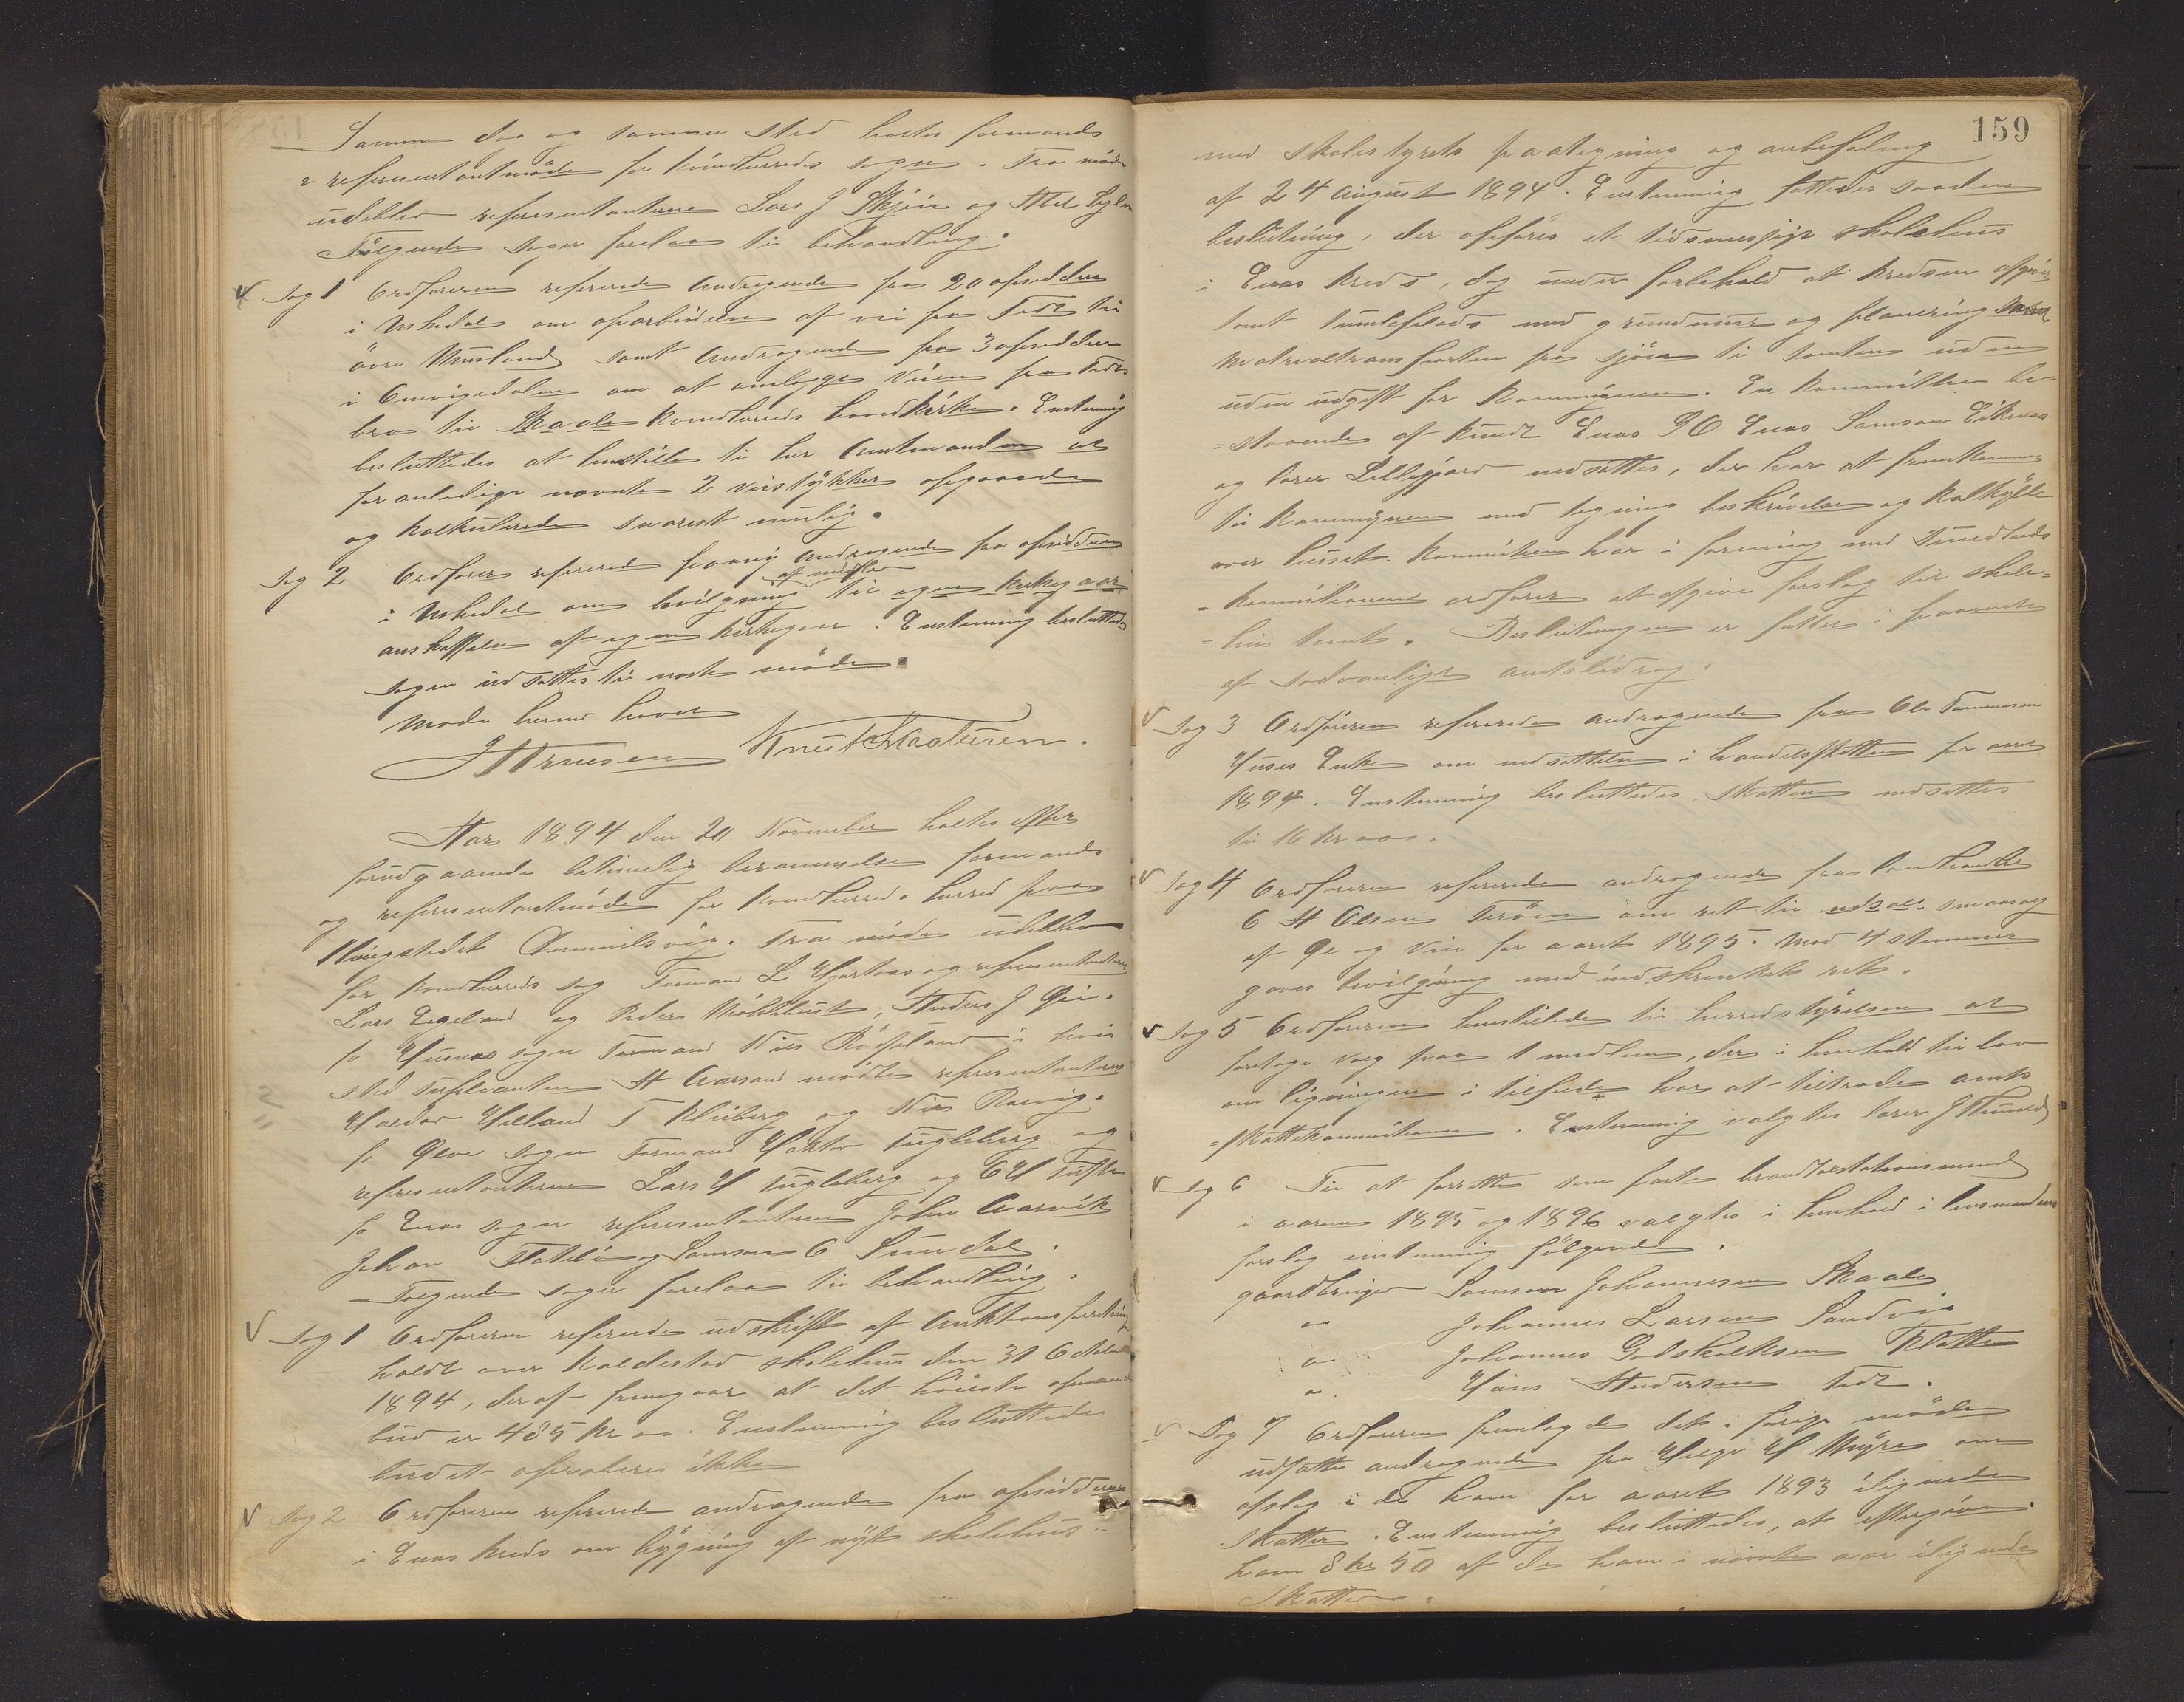 Samme dag og samme sted holtes formands
& representantmöde for Kvindherreds sogn. Fra möde
udeblev representanterne Lars J Skjeie og
Fölgende sager forelaa til behandling.
Sag 1 Ordföreren refererede Andragende fra 20 opsiddere
i Uskedal om oparbeidelse af vei fra Feet til
övre Musland samt Andragende fra 3 opsiddere
i Omvigedalen om at omlægge Veien fra
bro til Skaale Kvindherreds hovedkirke. Enstemmig
besluttedes at henstille til hr Amtmanden at
foranledige nævnte 2 veistykker opgaaede
og kalkulerede snarest mulig.
Sag 2 Ordförer refererede paany andragende fra opsiddere
i Uskedal om bevilgning af midler til egen kirkegaar
anskaffelse af egen kirkegaar. Enstemmig besluttedes
sagen udsættes til næste möde.
Möde hermed hævet
Knut Skaaluren.
Aar 1894 den 20 November holtes efter
forudgaaende betimelig berammelse formands
og representantmöde for Kvindherreds herred paa
thingstedet Demmelsvig. Fra möde udeblev
for Kvindherreds sog Formand L Hjortaas og representanterne
Lars Egeland og Peder Möklebust, Anders J Öie.
fr Husnes sogn Formand Nils Rössland i hvis
sted supleanten H Aarsand mödte representanterne
Haldor Helland T Kleiberg og Nils Rørvig.
fr Ølve sogn Formand Haktor Fugleberg og
representanterne Lars H Fugleberg og O H Tufte
fr Enæs sogn representanterne John Aarvik
Johan Flatebö og Samson O Sundal.
Følgende sager forelaa til behandling.
Sag 1 Ordföreren refererede udskrift af Auktionsforretning
holdt over Kaldestad skolehus den 31 Oktober
1894, deraf fremgaar at det höieste opnaaede
bud er 485 kr oo. Enstemmig besluttedes
budet aproberes ikke
Sag 2 Ordföreren refererede andragende fra opsiddere
i Enæs kreds om bygning af nyt skolehus
159
med skolestyrets paategning og anbefaling
af 24 August 1894. Enstemmig fattedes saadan
beslutning, der opföres et tidsmessigt skolehus
i Enæs kreds, dog under forbehold at kredsen afgiver
tomt tumleplads med grundmur og planering samt
matrealtransporten fra sjöen til tomten uden
uden udgift for Kommunen. En kommitte be-
=staaende af Knudt Enæs P O Enæs Samson Eikenæs
og lærer Lillegjærd nedsættes, der har at fremkomme
til kommunen med tegning beskrivelse og kalkyle
over huset. Kommiteen har i forening med Sundheds
=kommitionens ordförer at afgive forslag til skole=
=hus tomt. Beslutningen er fattet i paavente
af sedvanligt amtsbidrag.
Sag 3 Ordföreren refererede andragende fra Ole Tommesen
Huses Enke om nedsættelse i handelsskatten for aaret
1894. Enstemmig besluttedes, skatten nedsættes
til 16 kr oo.
Sag 4 Ordföreren refererede andragende fra landhandler
O H Olsen Teröen om ret til udsalg smaasalg
af Øl og Vin for aaret 1895. Mod 4 stemmer
gaves bevilgning med indskrenket ret.
Sag 5 Ordföreren henstillede til herredstyrelsen at
foretage valg paa 1 medlem, der i henhold til lov
om ligningen i tilfelde har at tiltræde amts
=skattekommitionen. Enstemmig valgtes lærer J
Sag 6 Til at forrette som faste brandtakstationsmænd
i aarene 1895 og 1896 valgtes i henhold i lensmandens
forslag enstemmig fölgende.
gaardbruger Samson Johannesen Skaale
" Johannes Larsen Sandvig
" Johannes Godskalksen Kletten
" Hans Andersen Feet.
Sag 7 Ordföreren fremlagde det i forige möde
udsatte andragende fra Helge H Myre om
afslag i de ham for aaret 1893 ilignede
skatter. Enstemmig besluttedes, at eftergive
ham 8 kr 50 af de ham i nævnte aar ilignede
skatter.